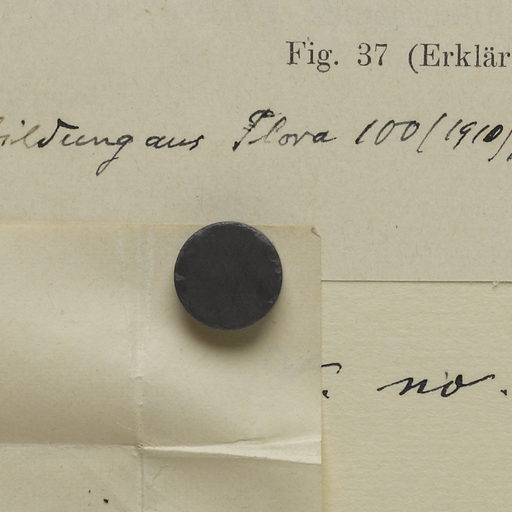 Fig. 37 (Erklär
bildung aus Flora 100 (1910)
no.